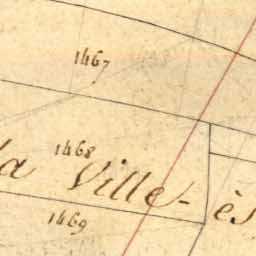 1467
1468
la Ville-ès
1469